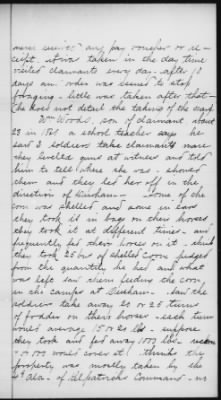 never received any pay voucher or re-
ceipt. it was taken in the day time
visited claimants every day. after 10
days an order was issued to stop
foraging - little was taken after that -
he does not detail the taking of the
Wm Woods. son of claimant about
23 in 1865 a school teacher says he
saw 3 soldiers take claimants mare
they leveled guns at witness and told
him to tell where she was - showed
them and they led her off in the
direction of Durham - some of the
corn was shelled and some in ears
they took it in bags on their horses
they took it at different times - and
frequently fed their horses on it - think
they took 25 bus of shelled corn judged
from the quantity he had and what
was left saw them feeding the corn
in the camps at Durham - saw the
soldiers take away 20 or 25 turns
of fodder on their horses - each turn
would average 15 or 20 lbs - suppose
they took and fed away 1000 lbs -
or 100 would cover it. thinks the
property was mostly taken by the
of Kilpatricks Command - no